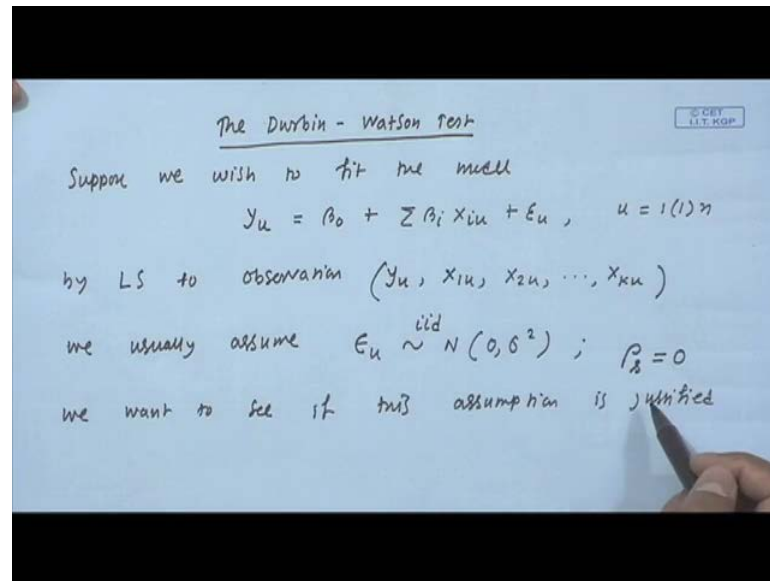 The Durbin - Watson Test
© CET
I.I.T. KGP
Suppose we wish to fit the model
yu = β0 + Σ βi xiu + εu , u = 1(1)n
by LS to observation (yu, x1u, x2u, ..., xku)
we usually assume εu iid ~ N(0, σ²) ; ρs = 0
we want to see if this assumption is justified